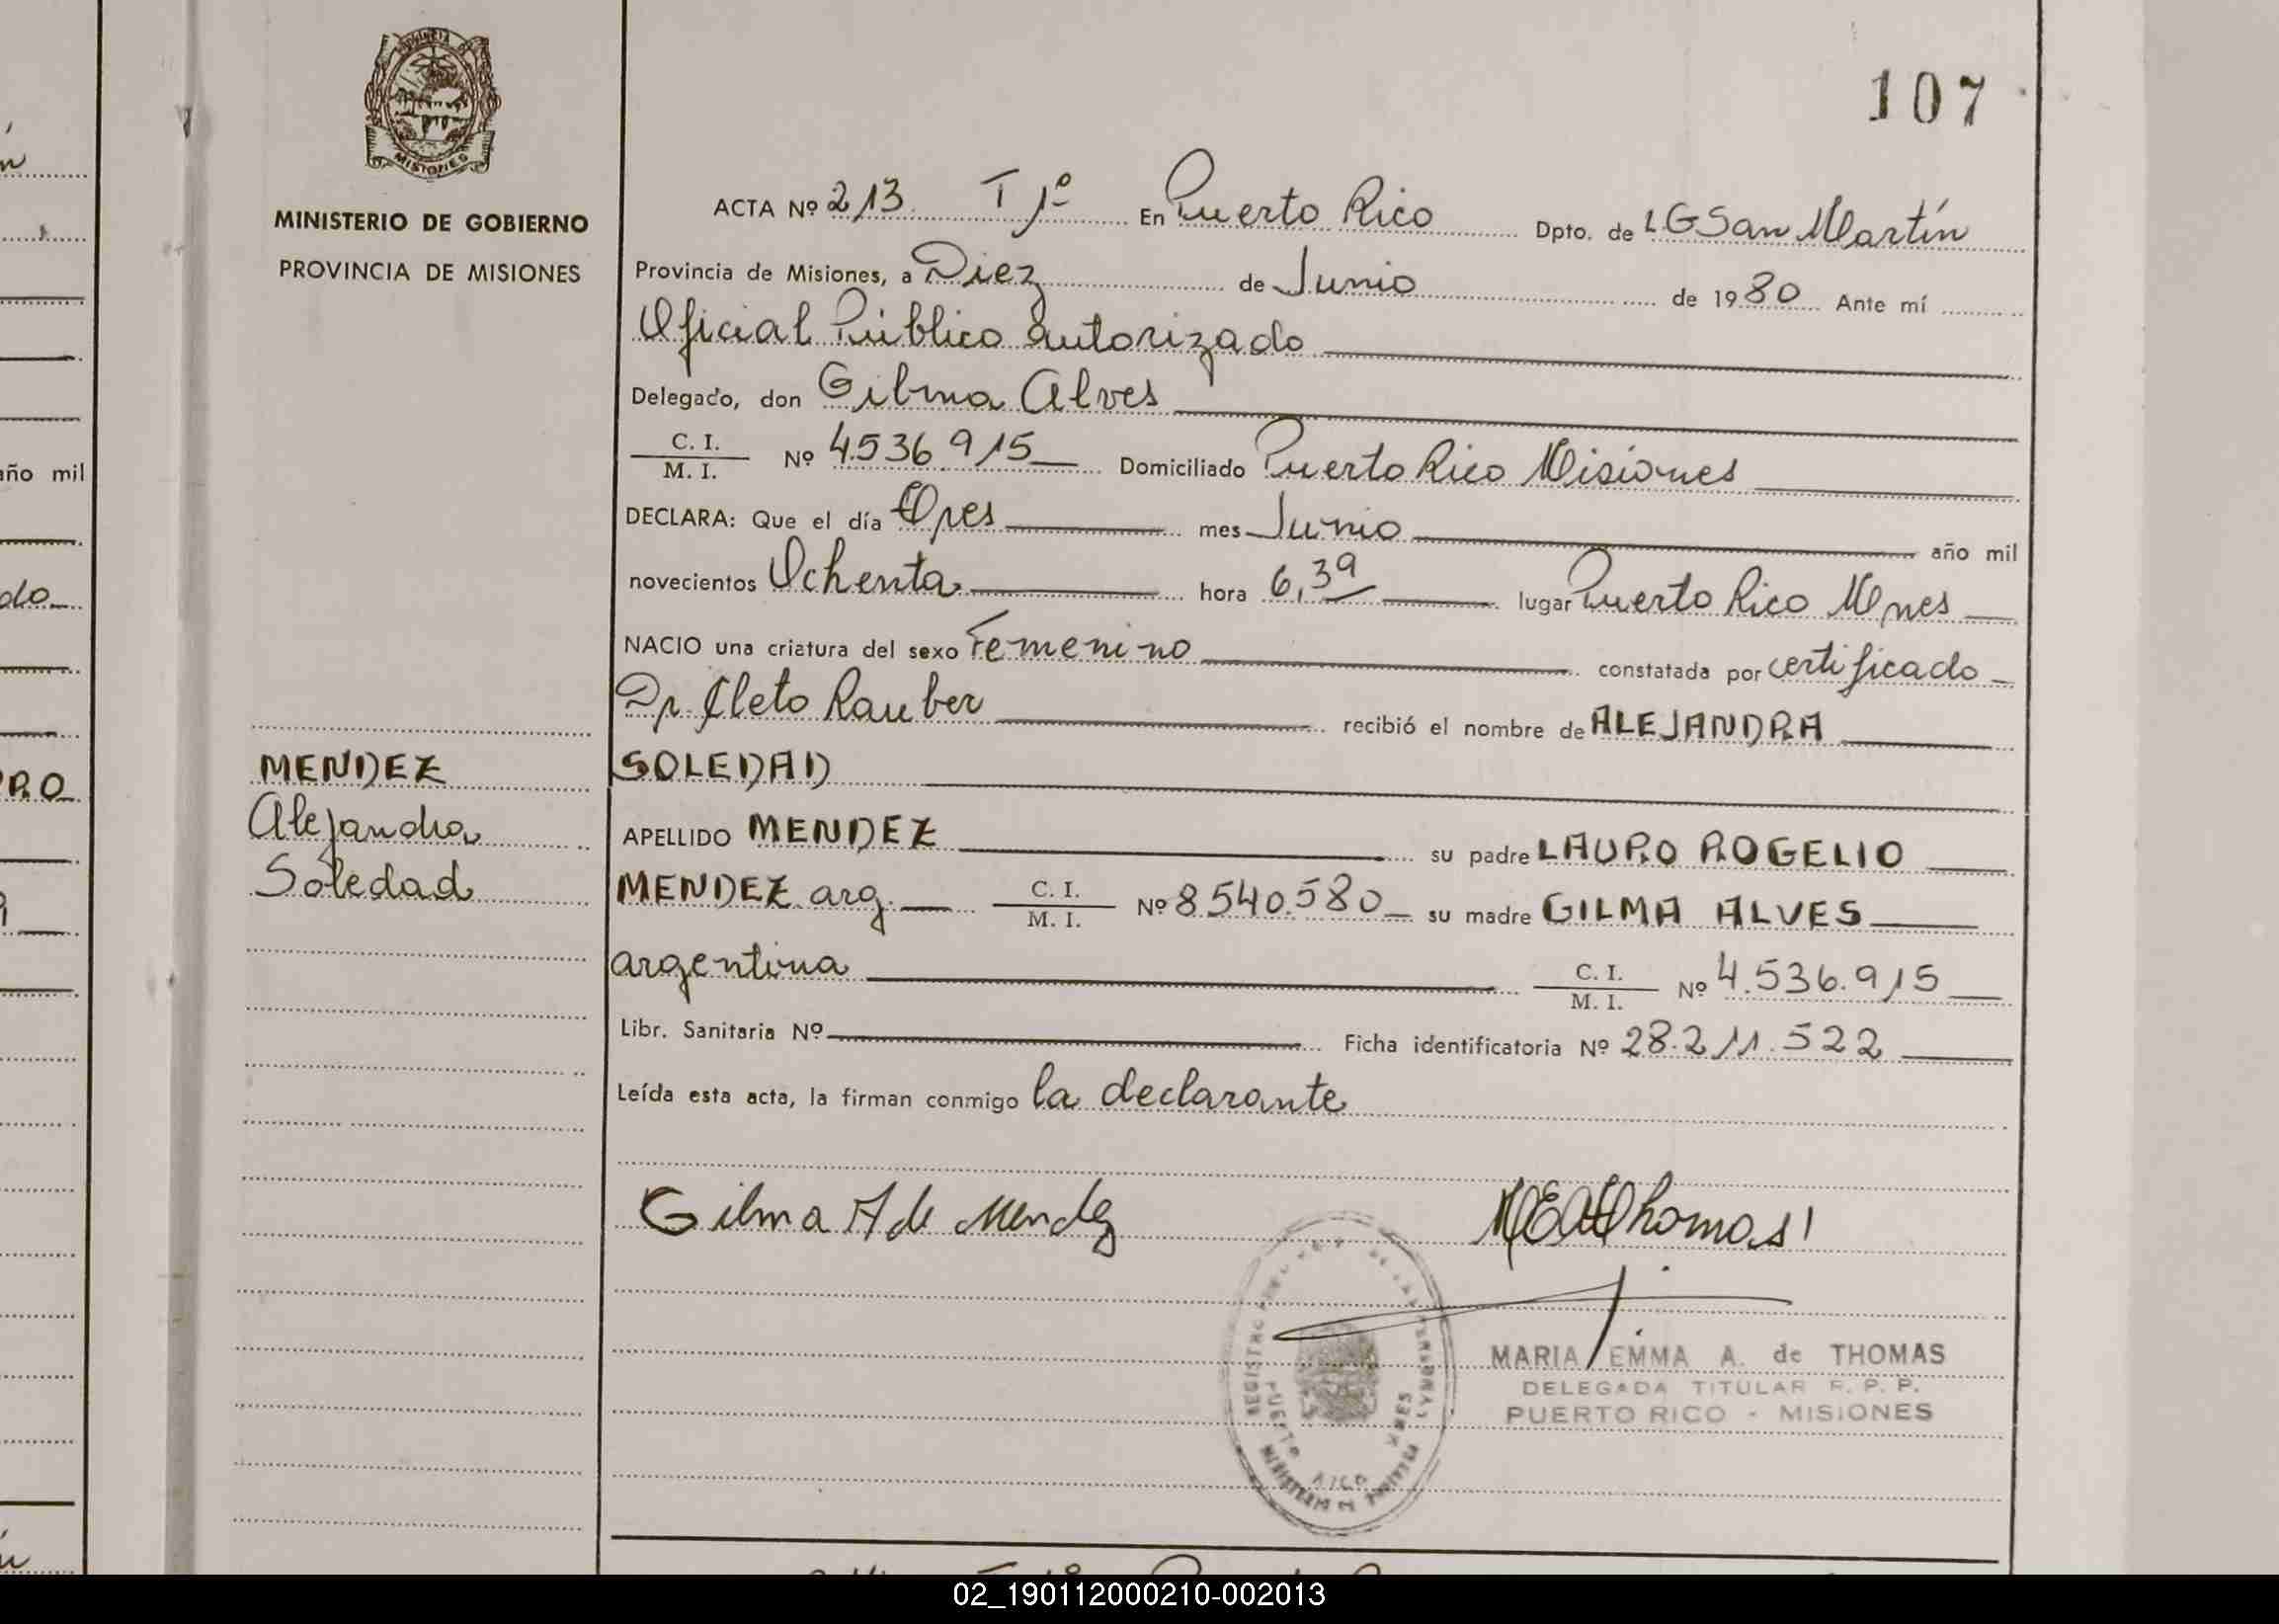 107
MINISTERIO DE GOBIERNO
PROVINCIA DE MISIONES
ACTA Nº 213 T 1º En Puerto Rico Dpto. de LGSan Martín
Provincia de Misiones, a Diez de Junio de 1980 Ante mí
Oficial Público autorizado
Delegado, don Gilma Alves
C. I. / M. I. Nº 4.536.915 Domiciliado Puerto Rico Misiones
DECLARA: Que el día Tres mes Junio año mil
novecientos Ochenta hora 6,39 lugar Puerto Rico Mnes
NACIO una criatura del sexo Femenino constatada por certificado
Dr. Cleto Rauber recibió el nombre de ALEJANDRA
SOLEDAD
APELLIDO MENDEZ su padre LAURO ROGELIO
MENDEZ arg. C. I. / M. I. Nº 8.540.580 su madre GILMA ALVES
argentina C. I. / M. I. Nº 4.536.915
Libr. Sanitaria Nº Ficha identificatoria Nº 28.211.522
Leída esta acta, la firman conmigo la declarante
MENDEZ
Alejandra
Soledad
Gilma A de Mendez
MEAThomas
MARIA EMMA A. de THOMAS
DELEGADA TITULAR R. P. P.
PUERTO RICO - MISIONES
REGISTRO
PUERTO RICO
MNES
año mil
02_190112000210-002013